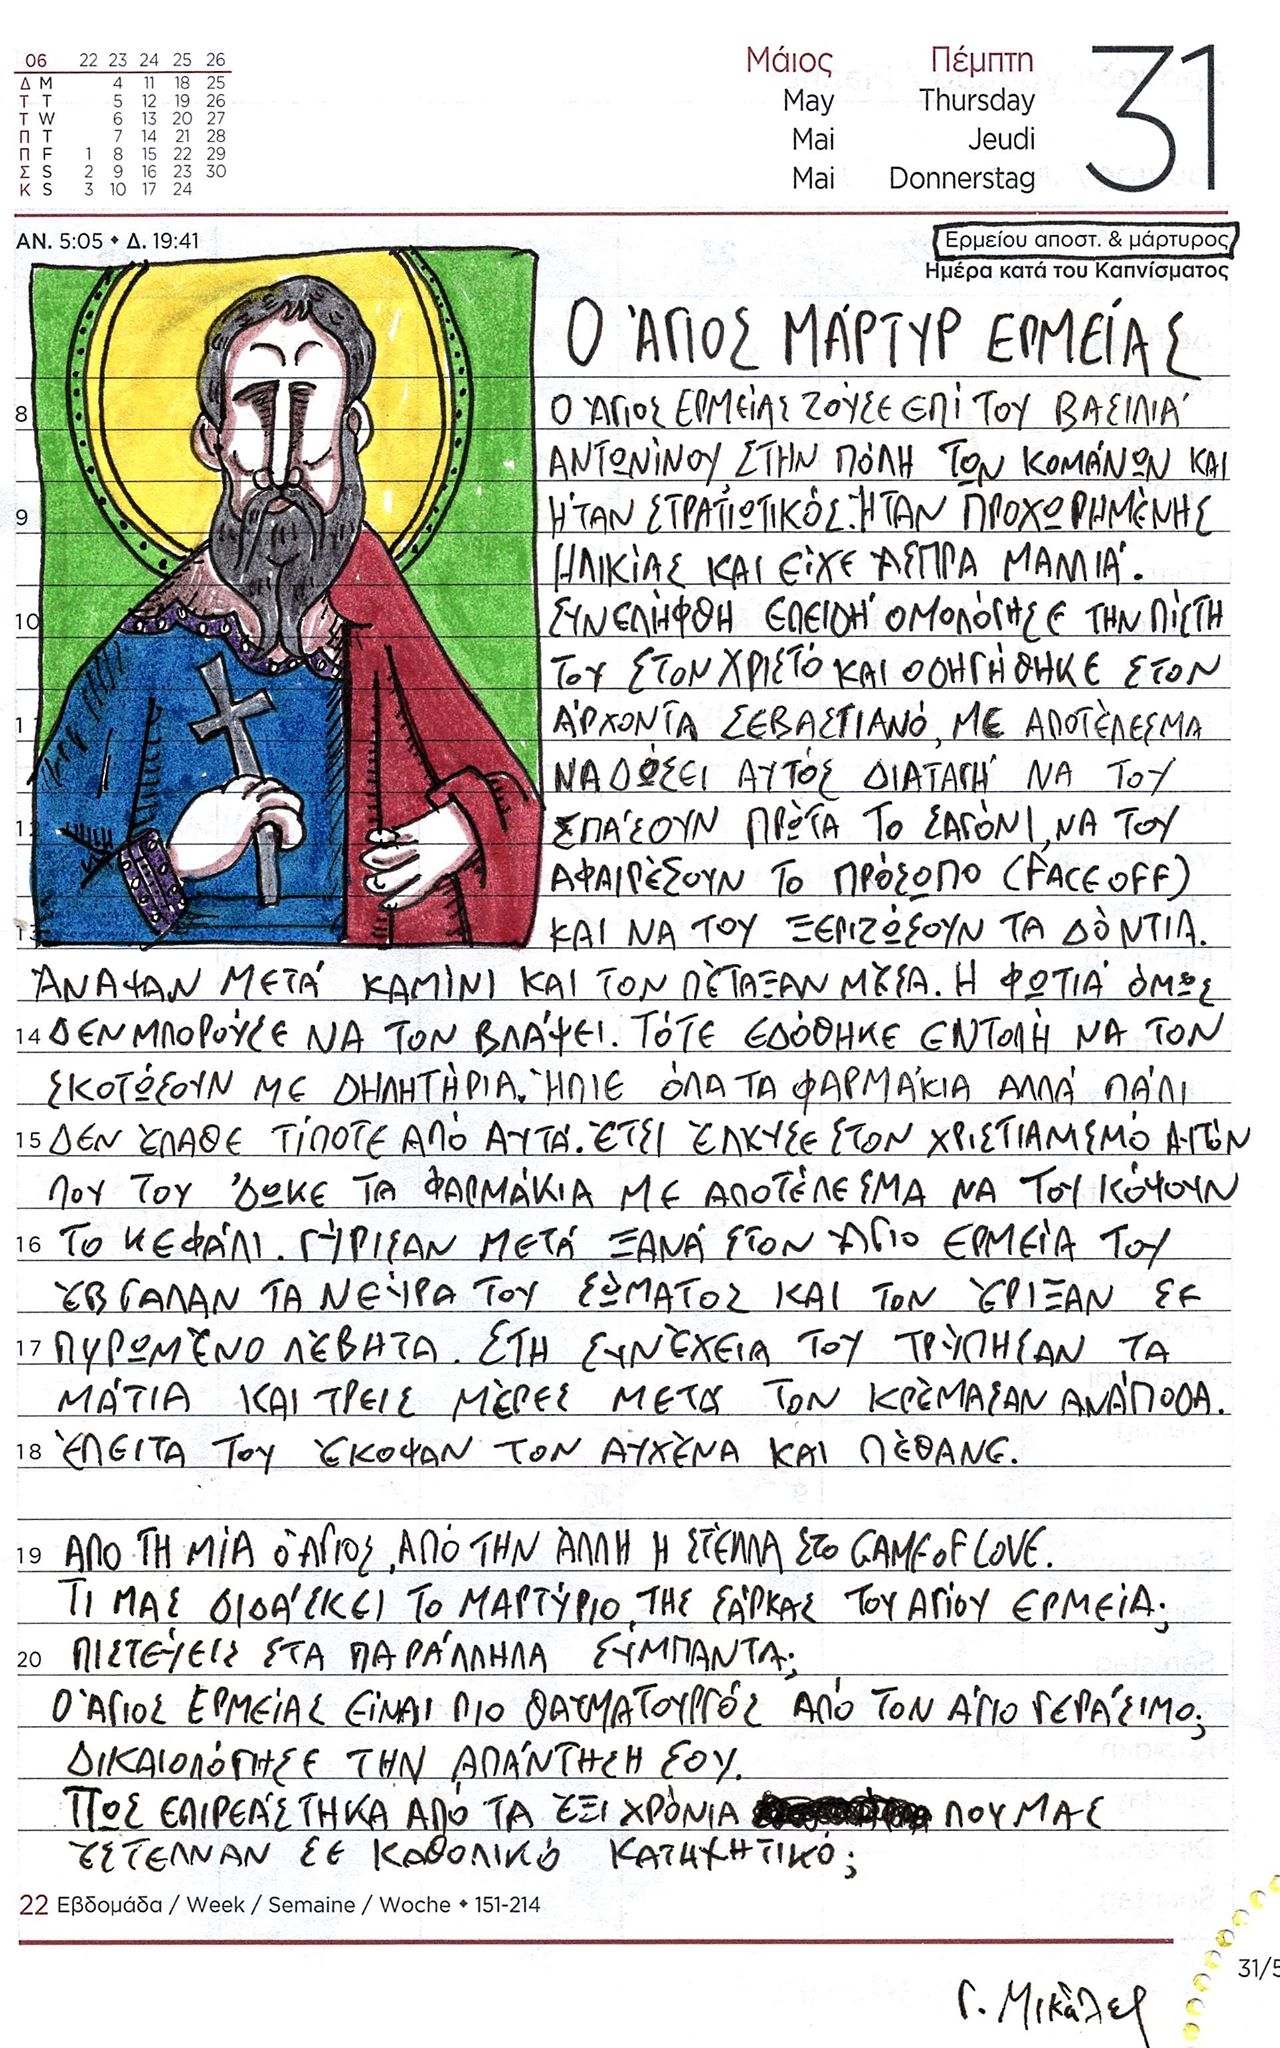 06 22 23 24 25 26
Δ M 4 11 18 25
Τ T 5 12 19 26
Τ W 6 13 20 27
Π T 7 14 21 28
Π F 1 8 15 22 29
Σ S 2 9 16 23 30
Κ S 3 10 17 24
Μάιος Πέμπτη
May Thursday
Mai Jeudi
Mai Donnerstag
31
ΑΝ. 5:05 • Δ. 19:41
Ερμείου αποστ. & μάρτυρος
Ημέρα κατά του Καπνίσματος
Ο ΆΓΙΟΣ ΜΆΡΤΥΡ ΕΡΜΕΊΑΣ
8 Ο ΆΓΙΟΣ ΕΡΜΕΊΑΣ ΖΟΎΣΕ ΕΠΊ ΤΟΥ ΒΑΣΙΛΙΆ
ΑΝΤΩΝΊΝΟΥ, ΣΤΗΝ ΠΌΛΗ ΤΩΝ ΚΟΜΆΝΩΝ ΚΑΙ
9 ΉΤΑΝ ΣΤΡΑΤΙΩΤΙΚΌΣ. ΉΤΑΝ ΠΡΟΧΩΡΗΜΈΝΗΣ
ΗΛΙΚΊΑΣ ΚΑΙ ΕΊΧΕ ΆΣΠΡΑ ΜΑΛΛΙΆ.
10 ΣΥΝΕΛΉΦΘΗ ΕΠΕΙΔΉ ΟΜΟΛΌΓΗΣΕ ΤΗΝ ΠΊΣΤΗ
ΤΟΥ ΣΤΟΝ ΧΡΙΣΤΌ ΚΑΙ ΟΔΗΓΉΘΗΚΕ ΣΤΟΝ
11 ΆΡΧΟΝΤΑ ΣΕΒΑΣΤΙΑΝΌ, ΜΕ ΑΠΟΤΈΛΕΣΜΑ
ΝΑ ΔΏΣΕΙ ΑΥΤΌΣ ΔΙΑΤΑΓΉ ΝΑ ΤΟΥ
12 ΣΠΆΣΟΥΝ ΠΡΏΤΑ ΤΟ ΣΑΓΌΝΙ, ΝΑ ΤΟΥ
ΑΦΑΙΡΈΣΟΥΝ ΤΟ ΠΡΌΣΩΠΟ (FACE OFF)
13 ΚΑΙ ΝΑ ΤΟΥ ΞΕΡΙΖΏΣΟΥΝ ΤΑ ΔΌΝΤΙΑ.
ΆΝΑΨΑΝ ΜΕΤΆ ΚΑΜΊΝΙ ΚΑΙ ΤΟΝ ΠΈΤΑΞΑΝ ΜΈΣΑ. Η ΦΩΤΙΆ ΌΜΩΣ
14 ΔΕΝ ΜΠΟΡΟΎΣΕ ΝΑ ΤΟΝ ΒΛΆΨΕΙ. ΤΌΤΕ ΕΔΌΘΗΚΕ ΕΝΤΟΛΉ ΝΑ ΤΟΝ
ΣΚΟΤΏΣΟΥΝ ΜΕ ΔΗΛΗΤΉΡΙΑ. ΉΠΙΕ ΌΛΑ ΤΑ ΦΑΡΜΆΚΙΑ ΑΛΛΆ ΠΆΛΙ
15 ΔΕΝ ΈΠΑΘΕ ΤΊΠΟΤΕ ΑΠΌ ΑΥΤΆ. ΈΤΣΙ ΈΛΚΥΣΕ ΣΤΟΝ ΧΡΙΣΤΙΑΝΙΣΜΌ ΑΥΤΌΝ
ΠΟΥ ΤΟΥ ΈΔΩΚΕ ΤΑ ΦΑΡΜΆΚΙΑ ΜΕ ΑΠΟΤΈΛΕΣΜΑ ΝΑ ΤΟΥ ΚΌΨΟΥΝ
16 ΤΟ ΚΕΦΆΛΙ. ΓΎΡΙΣΑΝ ΜΕΤΆ ΞΑΝΆ ΣΤΟΝ ΆΓΙΟ ΕΡΜΕΊΑ ΤΟΥ
ΈΒΓΑΛΑΝ ΤΑ ΝΕΎΡΑ ΤΟΥ ΣΏΜΑΤΟΣ ΚΑΙ ΤΟΝ ΈΡΙΞΑΝ ΣΕ
17 ΠΥΡΩΜΈΝΟ ΛΈΒΗΤΑ. ΣΤΗ ΣΥΝΈΧΕΙΑ ΤΟΥ ΤΡΎΠΗΣΑΝ ΤΑ
ΜΆΤΙΑ ΚΑΙ ΤΡΕΙΣ ΜΈΡΕΣ ΜΕΤΆ ΤΟΝ ΚΡΈΜΑΣΑΝ ΑΝΆΠΟΔΑ.
18 ΈΠΕΙΤΑ ΤΟΥ ΈΚΟΨΑΝ ΤΟΝ ΑΥΧΈΝΑ ΚΑΙ ΠΈΘΑΝΕ.
19 ΑΠΌ ΤΗ ΜΊΑ Ο ΆΓΙΟΣ, ΑΠΌ ΤΗΝ ΆΛΛΗ Η ΣΤΈΛΛΑ ΣΤΟ GAME OF LOVE.
ΤΙ ΜΑΣ ΔΙΔΆΣΚΕΙ ΤΟ ΜΑΡΤΎΡΙΟ ΤΗΣ ΣΆΡΚΑΣ ΤΟΥ ΑΓΊΟΥ ΕΡΜΕΊΑ;
20 ΠΙΣΤΕΎΕΙΣ ΣΤΑ ΠΑΡΆΛΛΗΛΑ ΣΎΜΠΑΝΤΑ;
Ο ΆΓΙΟΣ ΕΡΜΕΊΑΣ ΕΊΝΑΙ ΠΙΟ ΘΑΥΜΑΤΟΥΡΓΌΣ ΑΠΌ ΤΟΝ ΆΓΙΟ ΓΕΡΆΣΙΜΟ;
ΔΙΚΑΙΟΛΌΓΗΣΕ ΤΗΝ ΑΠΆΝΤΗΣΗ ΣΟΥ.
ΠΩΣ ΕΠΙΡΕΆΣΤΗΚΑ ΑΠΌ ΤΑ ΈΞΙ ΧΡΌΝΙΑ ΠΟΥ ΜΑΣ
ΈΣΤΕΛΝΑΝ ΣΕ ΚΑΘΟΛΙΚΌ ΚΑΤΗΧΗΤΙΚΌ;
22 Εβδομάδα / Week / Semaine / Woche • 151-214
31/5
Γ. Μικάλεφ